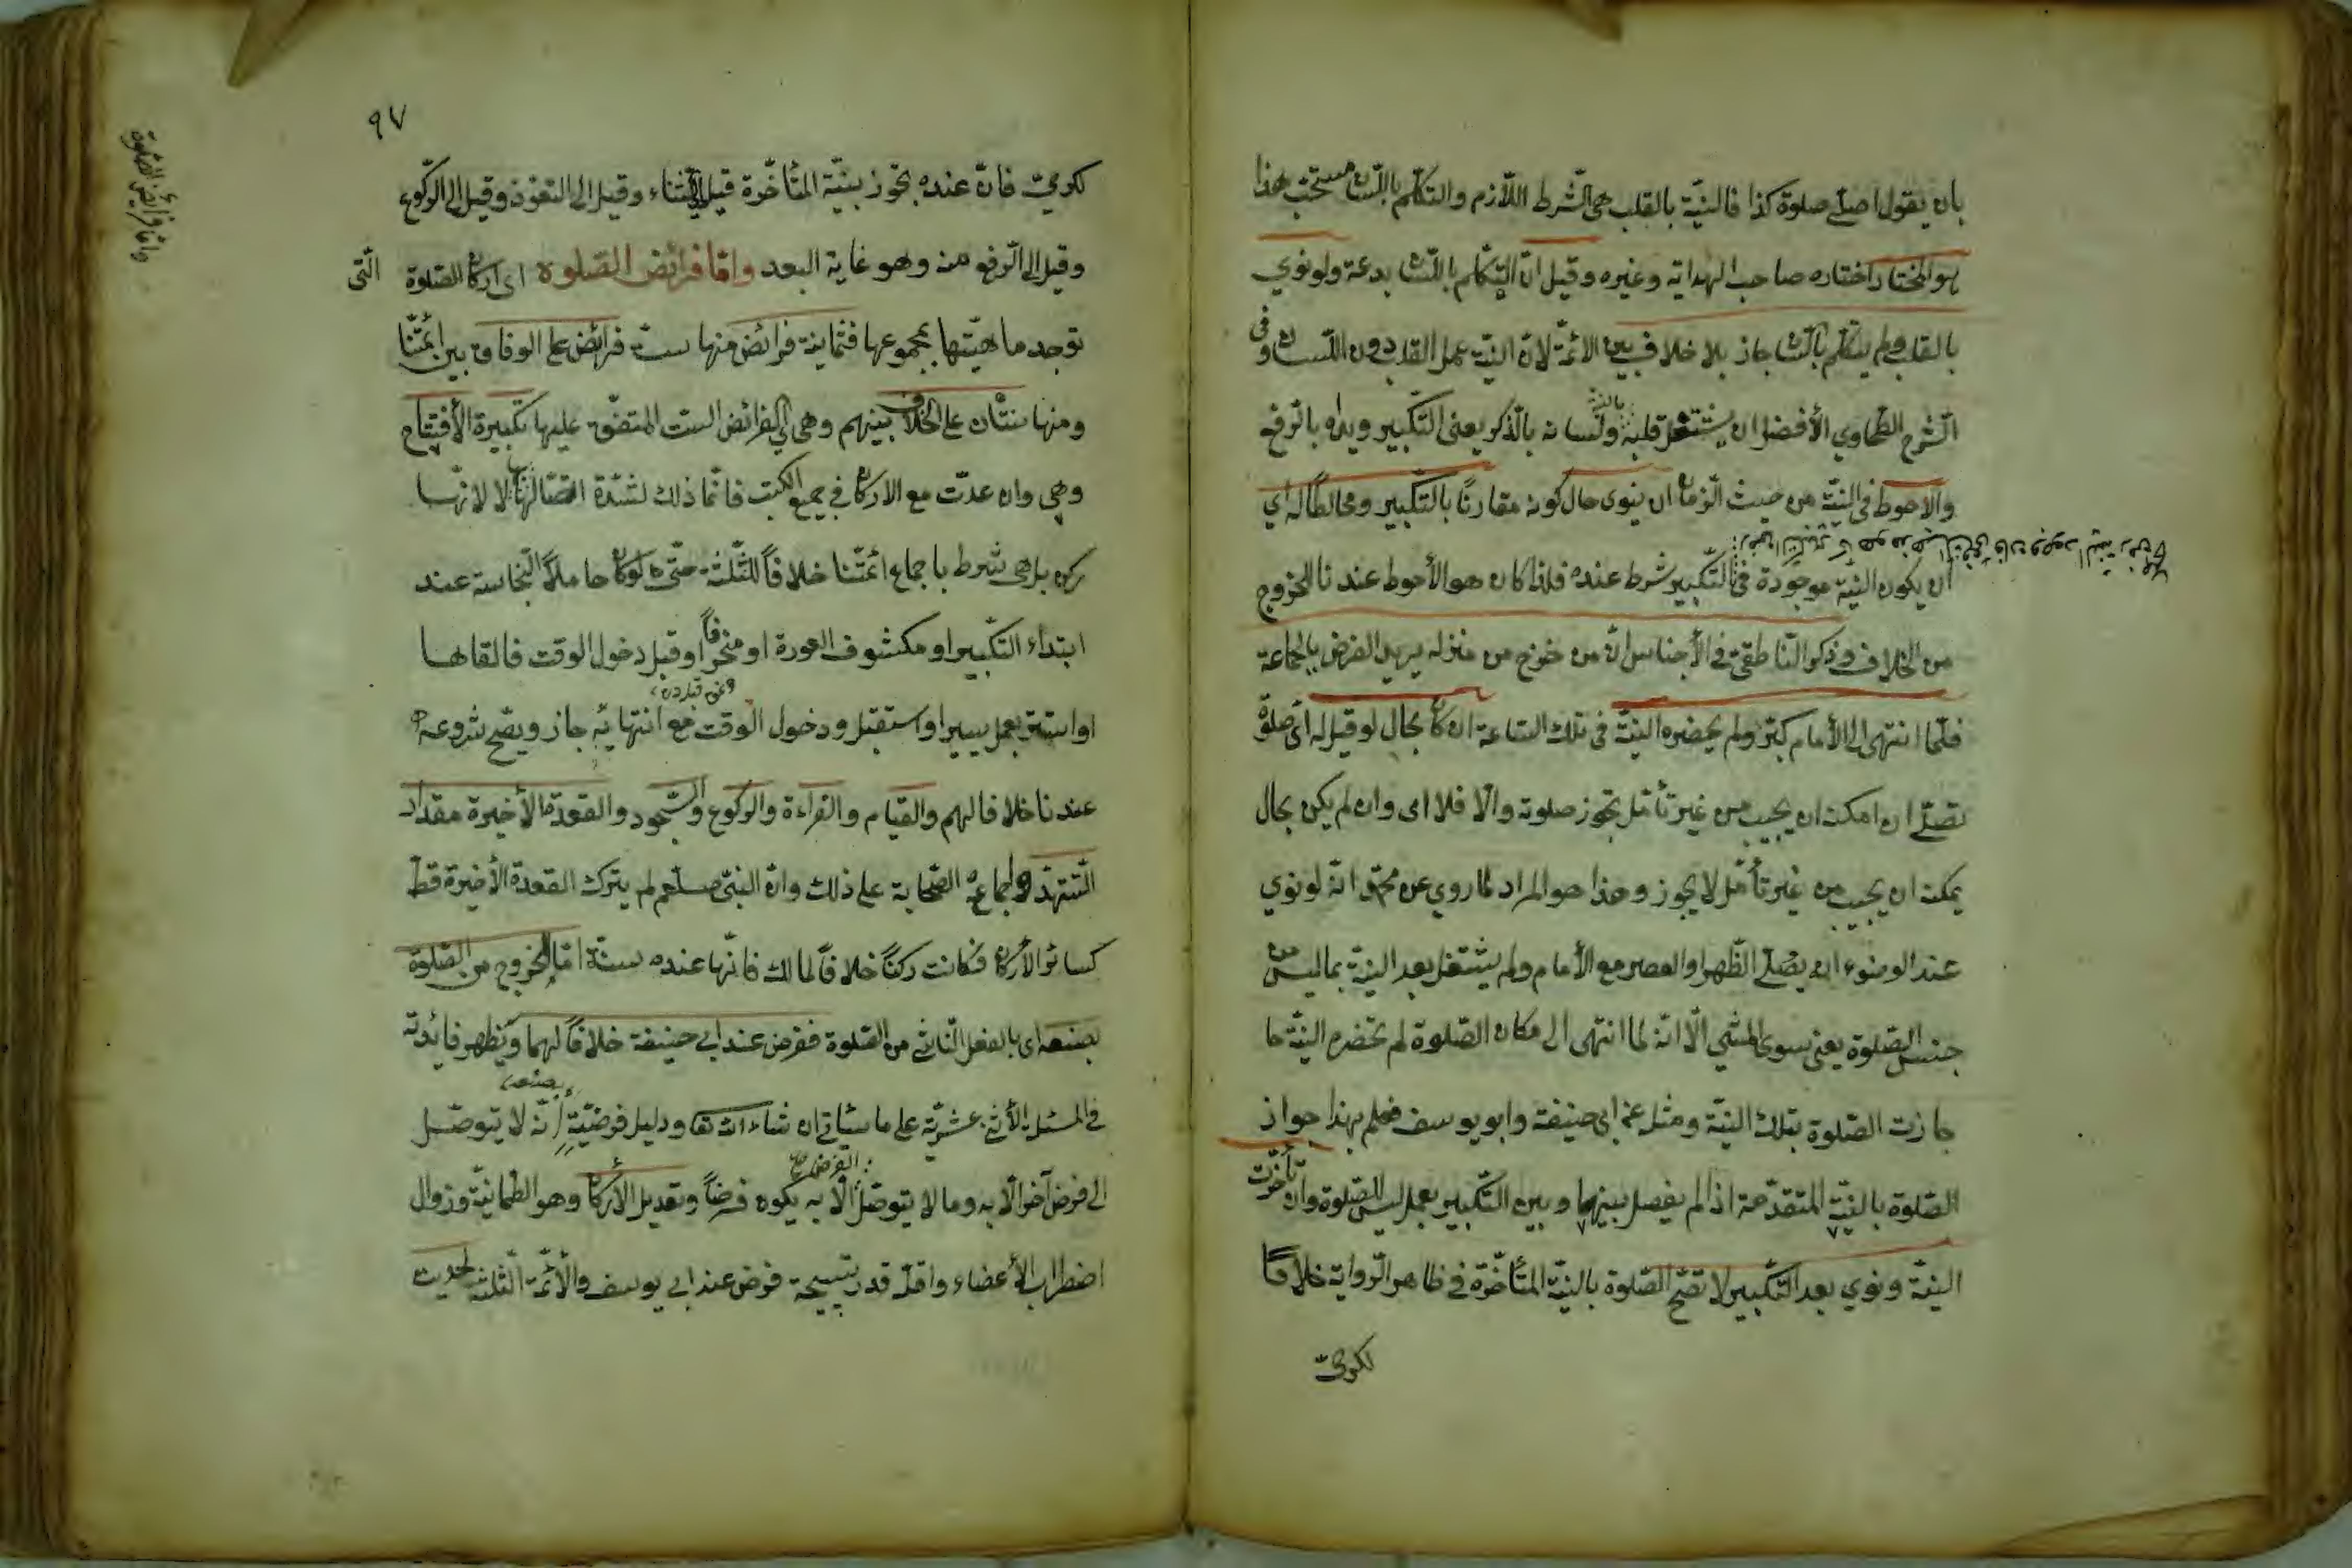 بان يقول اصلّي صلوة كذا فالنيّة بالقلب هي الشّرط اللّازم والتكلّم باللّسان مستحبّ هذا
هو المختار اختاره صاحب الهداية وغيره وقيل انّ التكلّم باللّسان بدعة ولو نوي
بالقلب ولم يتكلّم باللّسان جاز بلا خلاف بين الائمّة لانّ النيّة عمل القلب دون اللّسان وفي
الشّرح الطّحاوي الأفضل ان يشتغل قلبه بالنيّة ولسانه بالذّكر يعني التّكبير ويداه بالرّفع
والاحوط في النيّة من حيث الزّمان ان ينوي حال كونه مقارنًا بالتّكبير ومخالطًا له اي
ان يكون النيّة موجودة في التّكبير شرط عنده فلذا كان هو الأحوط عندنا للخروج
من الخلاف وذكر النّاطقي في الأجناس انّ من خرج من منزله يريد الفرض بالجماعة
فلمّا انتهى الى الأمام كبّر ولم يحضره النيّة في تلك السّاعة ان كان بحال لو قيل له ايّ صلوة
تصلّي ان امكنه ان يجيب من غير تأمّل تجوز صلوته والّا فلا اى وان لم يكن بحال
يمكنه ان يجيب من غير تأمّل لا يجوز وهذا هو المراد لما روي عن محمّد انّه لو نوي
عند الوضوء ان يصلّي الظّهر او العصر مع الأمام ولم يشتغل بعد النيّة بما ليس من
جنس الصّلوة يعني سوى المشي الّا انّه لما انتهى الى مكان الصّلوة لم تحضره النيّة
جازت الصّلوة بتلك النيّة ومثله عن ابي حنيفة وابو يوسف فعلم بهذا جواز
الصّلوة بالنيّة المتقدّمة اذا لم يفصل بينها وبين التّكبير بعمل ليس للصّلوة وان تأخّرت
النيّة ونوي بعد التّكبير لا تصّح الصّلوة بالنيّة المتأخّرة في ظاهر الرّواية خلافًا
لكرخيّ
٩٧
وامّا فرائض الصلوة
لكرخيّ فانّ عنده تجوز بنيّة المتأخّرة قيل الى الثناء وقيل الى التعوّذ وقيل الى الرّكوع
وقيل الى الرّفع منه وهو غاية البعد وامّا فرائض الصّلوة اي اركان الصّلوة الّتي
توجد ماهيّتها بمجموعها فثمانية فرائض منها ستّ فرائض على الوفاق بين ائمّتنا
ومنها ثنتان على الخلاف بينهم وهي اي الفرائض الست المتفّق عليها تكبيرة الأفتتاح
وهي وان عدّت مع الاركان في جميع الكتب فانّما ذلك لشدّة اتّصالها بها لا لانّها
ركن بل هي شرط باجماع ائمّتنا خلافًا للثّلثة حتّى لو كان حاملًا لنّجاسة عند
ابتداء التكبير او مكشوف العورة او منحرفًا او قبل دخول الوقت فالقاها
او استتر بعمل يسير او استقبل ودخول الوقت مع انتهائه جاز ويصّح شروعه
عندنا خلافا لهم والقيام والقراءة والرّكوع والسّجود والقعدة الأخيرة مقدار
التّشهّد لاجماع الصّحابة على ذلك وانّ النبيّ صلعم لم يترك القعدة الأخيرة قطّ
كسائر الأركان فكانت ركنًا خلافًا لمالك فانّها عنده سنّة امّا الخروج من الصّلوة
بصنعه اي بالفعل النّاشي من الصّلوة ففرض عند ابي حنيفة خلافًا لهما وتظهر فائدته
في المسئلة الأثني عشريّة على ما سيأتي ان شاء الله تعا ودليل فرضيّة بصنعه انّه لا يتوصّل
الى فرض آخر الّا به وما لا يتوصّل الفرض الّا به يكون فرضًا وتعديل الأركان وهو الطّمانيّة وزوال
اضطراب الأعضاء واقلّه قدر تسبيحة فرض عند ابي يوسف والأئمّة الثّلثة لحديث